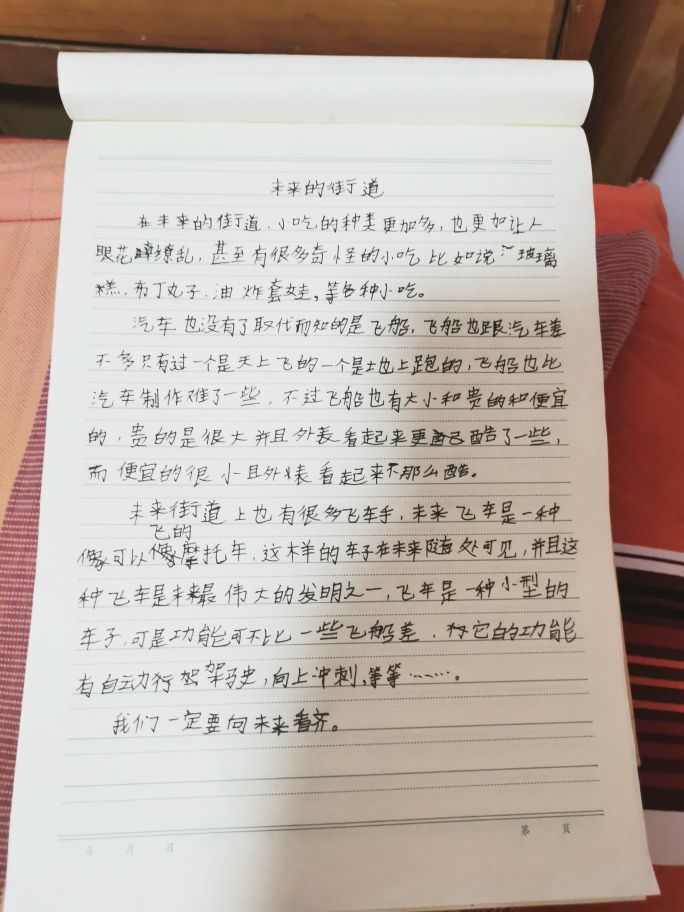 未来的街道
在未来的街道.小吃的种类更加多,也更加让人
眼花缭乱,甚至有很多奇怪的小吃比如说:玻璃
糕.布丁丸子.油炸套娃,等各种小吃。
汽车也没有了取代而知的是飞船,飞船也跟汽车差
不多只有过一个是天上飞的一个是地上跑的,飞船也比
汽车制作难了一些,不过飞船也有大小和贵的和便宜
的,贵的是很大并且外表看起来更酷了一些,
而便宜的很小且外表看起来不那么酷。
未来街道上也有很多飞车手,未来飞车是一种
飞的
像可以像摩托车,这样的车子在未来随处可见,并且这
种飞车是未来最伟大的发明之一,飞车是一种小型的
车子,可是功能可不比一些飞船差.它的功能
有自动行驾驶,向上冲刺,等等……。
我们一定要向未来看齐。
年 月 日
第 页